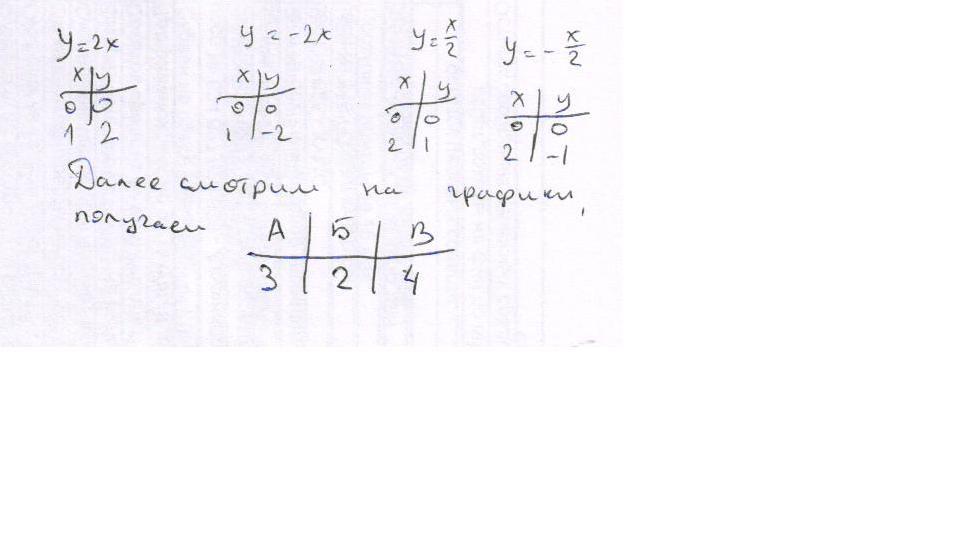 y=2x y=-2x y=x/2 y=-x/2
x y x y x y x y
0 0 0 0 0 0 0 0
1 2 1 -2 2 1 2 -1
Далее смотрим на графики,
получаем
А Б В
3 2 4